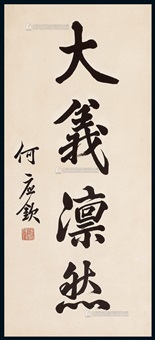 大義凜然
何应欽